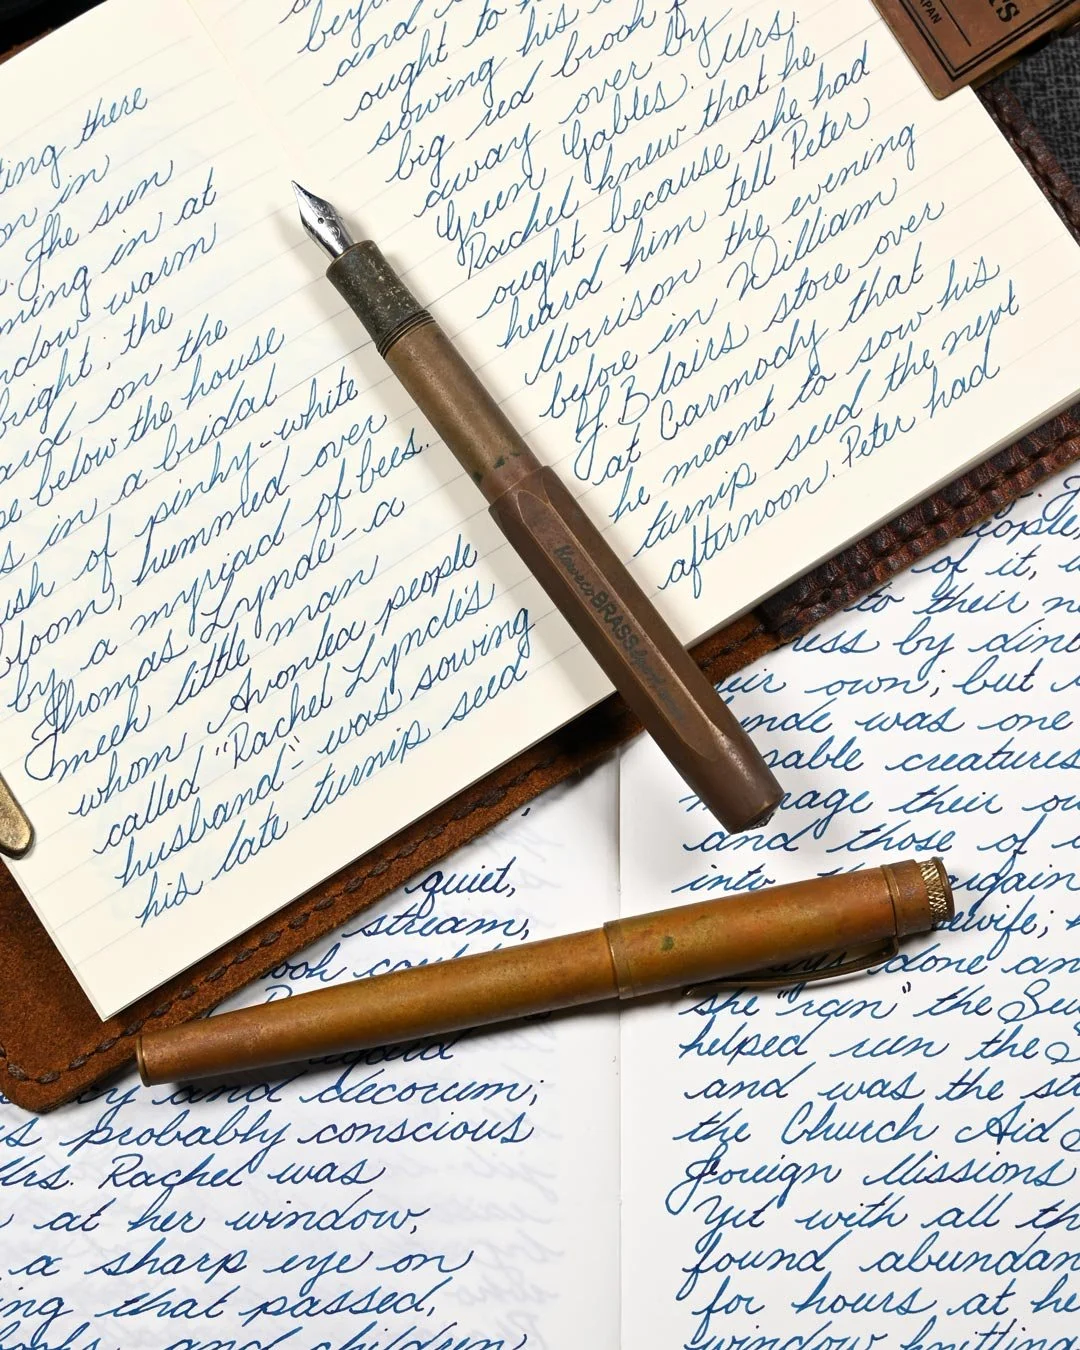 there
in
. The sun
ming in at
ndow warm
bright, the
ard on the
se below the house
s in a bridal
ush of pinky-white
bloom, hummed over
by a myriad of bees.
Thomas Lynde--a
meek little man
whom Avonlea people
called "Rachel Lynde's
husband"- was sowing
his late turnip seed
and
ought to
sowing his
big red brook
away over by
Green Gables. Mrs.
Rachel knew that he
ought because she had
heard him tell Peter
Morrison the evening
before in William
J. Blairs store over
at Carmody that
he meant to sow his
turnip seed the next
afternoon. Peter had
JAPAN
Kaweco BRASS Sport
quiet,
stream,
and decorum;
s probably conscious
Mrs. Rachel was
at her window,
a sharp eye on
ing that passed,
and children
eople,
of it,
to their
ess by
eir own; but
ynde was one
sable creatures
manage their
and those of
into argain
sewife;
done
she "ran" the Sew
helped run the S
and was the st
the Church Aid S
Foreign Missions
Yet with all th
found abundan
for hours at he
window knitting